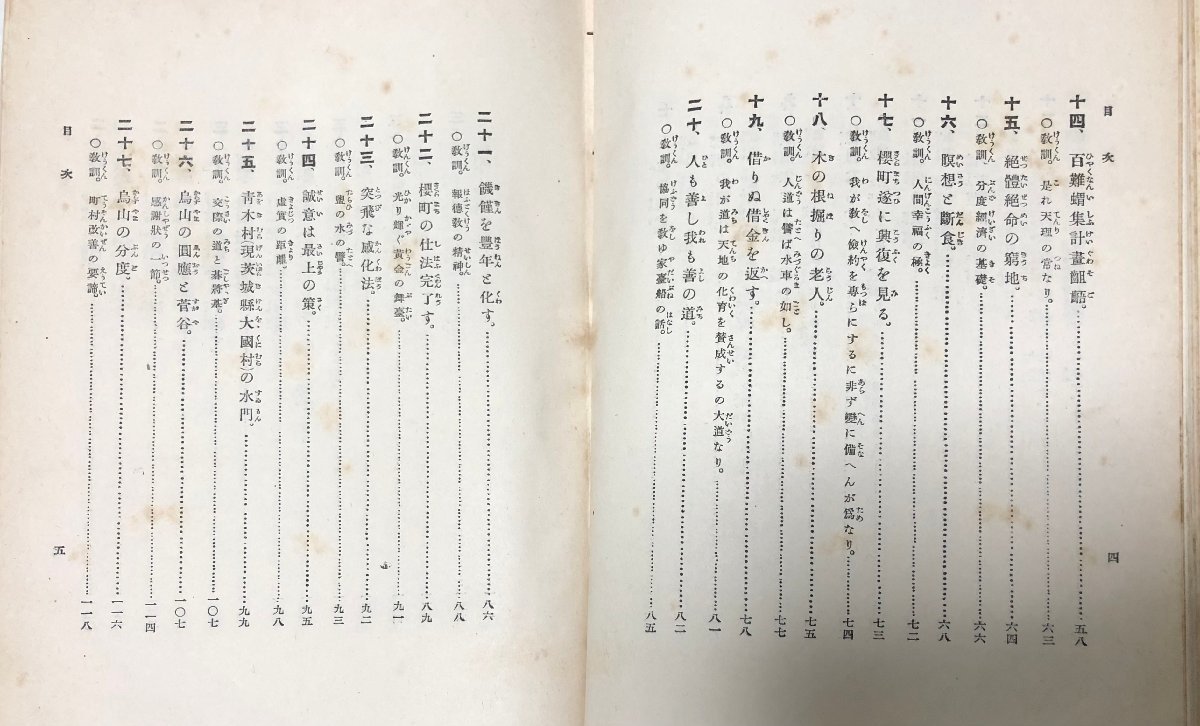 目次
十四、百難蝟集計畫齟齬。五八
○敎訓。是れ天理の常なり。六三
十五、絕體絕命の窮地。六四
○敎訓。分度經濟の基礎。六六
十六、瞑想と斷食。六八
○敎訓。人間幸福の極。七二
十七、櫻町遂に興復を見る。七三
○敎訓。我が敎へ儉約を專らにするに非ず變に備へんが爲なり。七四
十八、木の根掘りの老人。七五
○敎訓。人道は譬ば水車の如し。七七
十九、借りぬ借金を返す。七八
○敎訓。我が道は天地の化育を賛成するの大道なり。八一
二十、人も善し我も善の道。八二
○敎訓。協同を敎ゆ家臺船の話。八五
四
二十一、饑饉を豐年と化す。八六
○敎訓。報德敎の精神。八八
二十二、櫻町の仕法完了す。八九
○敎訓。光り輝ぐ黃金の舞臺。九一
二十三、突飛な感化法。九二
○敎訓。盥の水の譬。九三
二十四、誠意は最上の策。九五
○敎訓。虛實の距離。九八
二十五、靑木村(現茨城縣大國村)の水門。九九
○敎訓。交際の道と碁將棊。一〇七
二十六、烏山の圓應と菅谷。一〇七
○敎訓。感謝狀の一節。一一四
二十七、烏山の分度。一一六
○敎訓。町村改善の要諦。一一八
目次
五